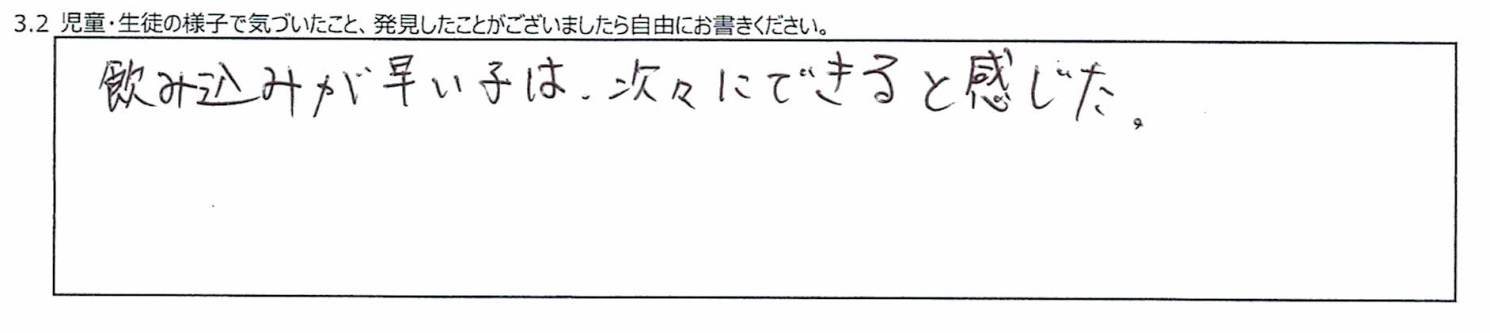 3.2 児童・生徒の様子で気づいたこと、発見したことがございましたら自由にお書きください。
飲み込みが早い子は、次々にできると感じた。